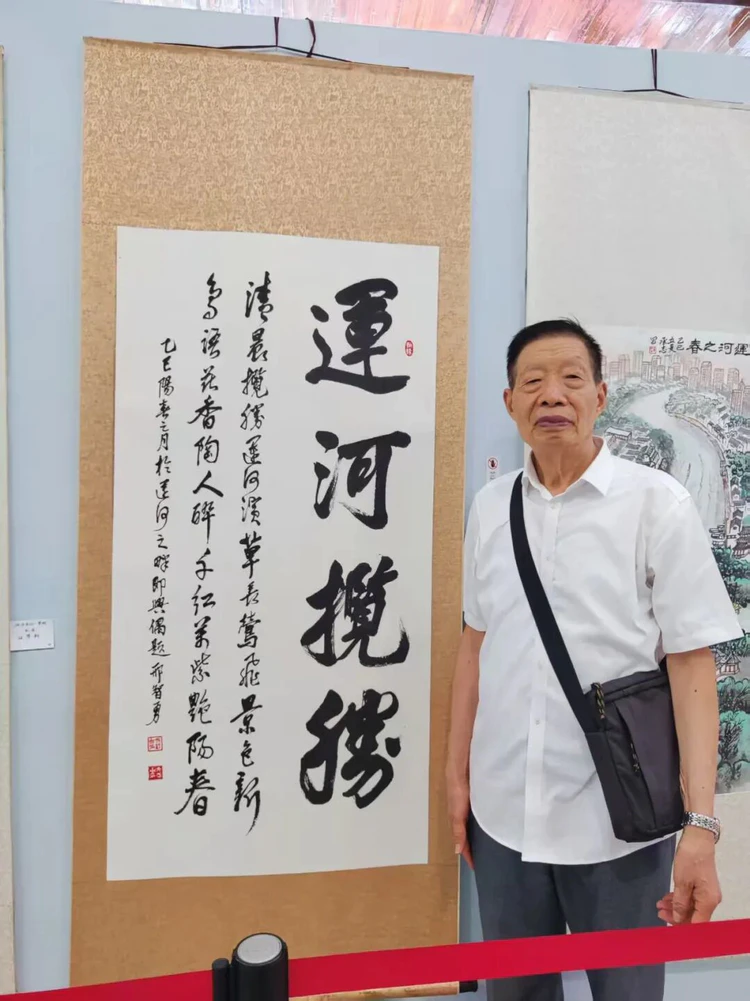 運河攬勝
清晨攬勝運河濱草長鶯飛景色新
鳥語花香陶人醉千紅萬紫艷陽春
乙巳陽春之月於運河之畔即興偶題
運河之春